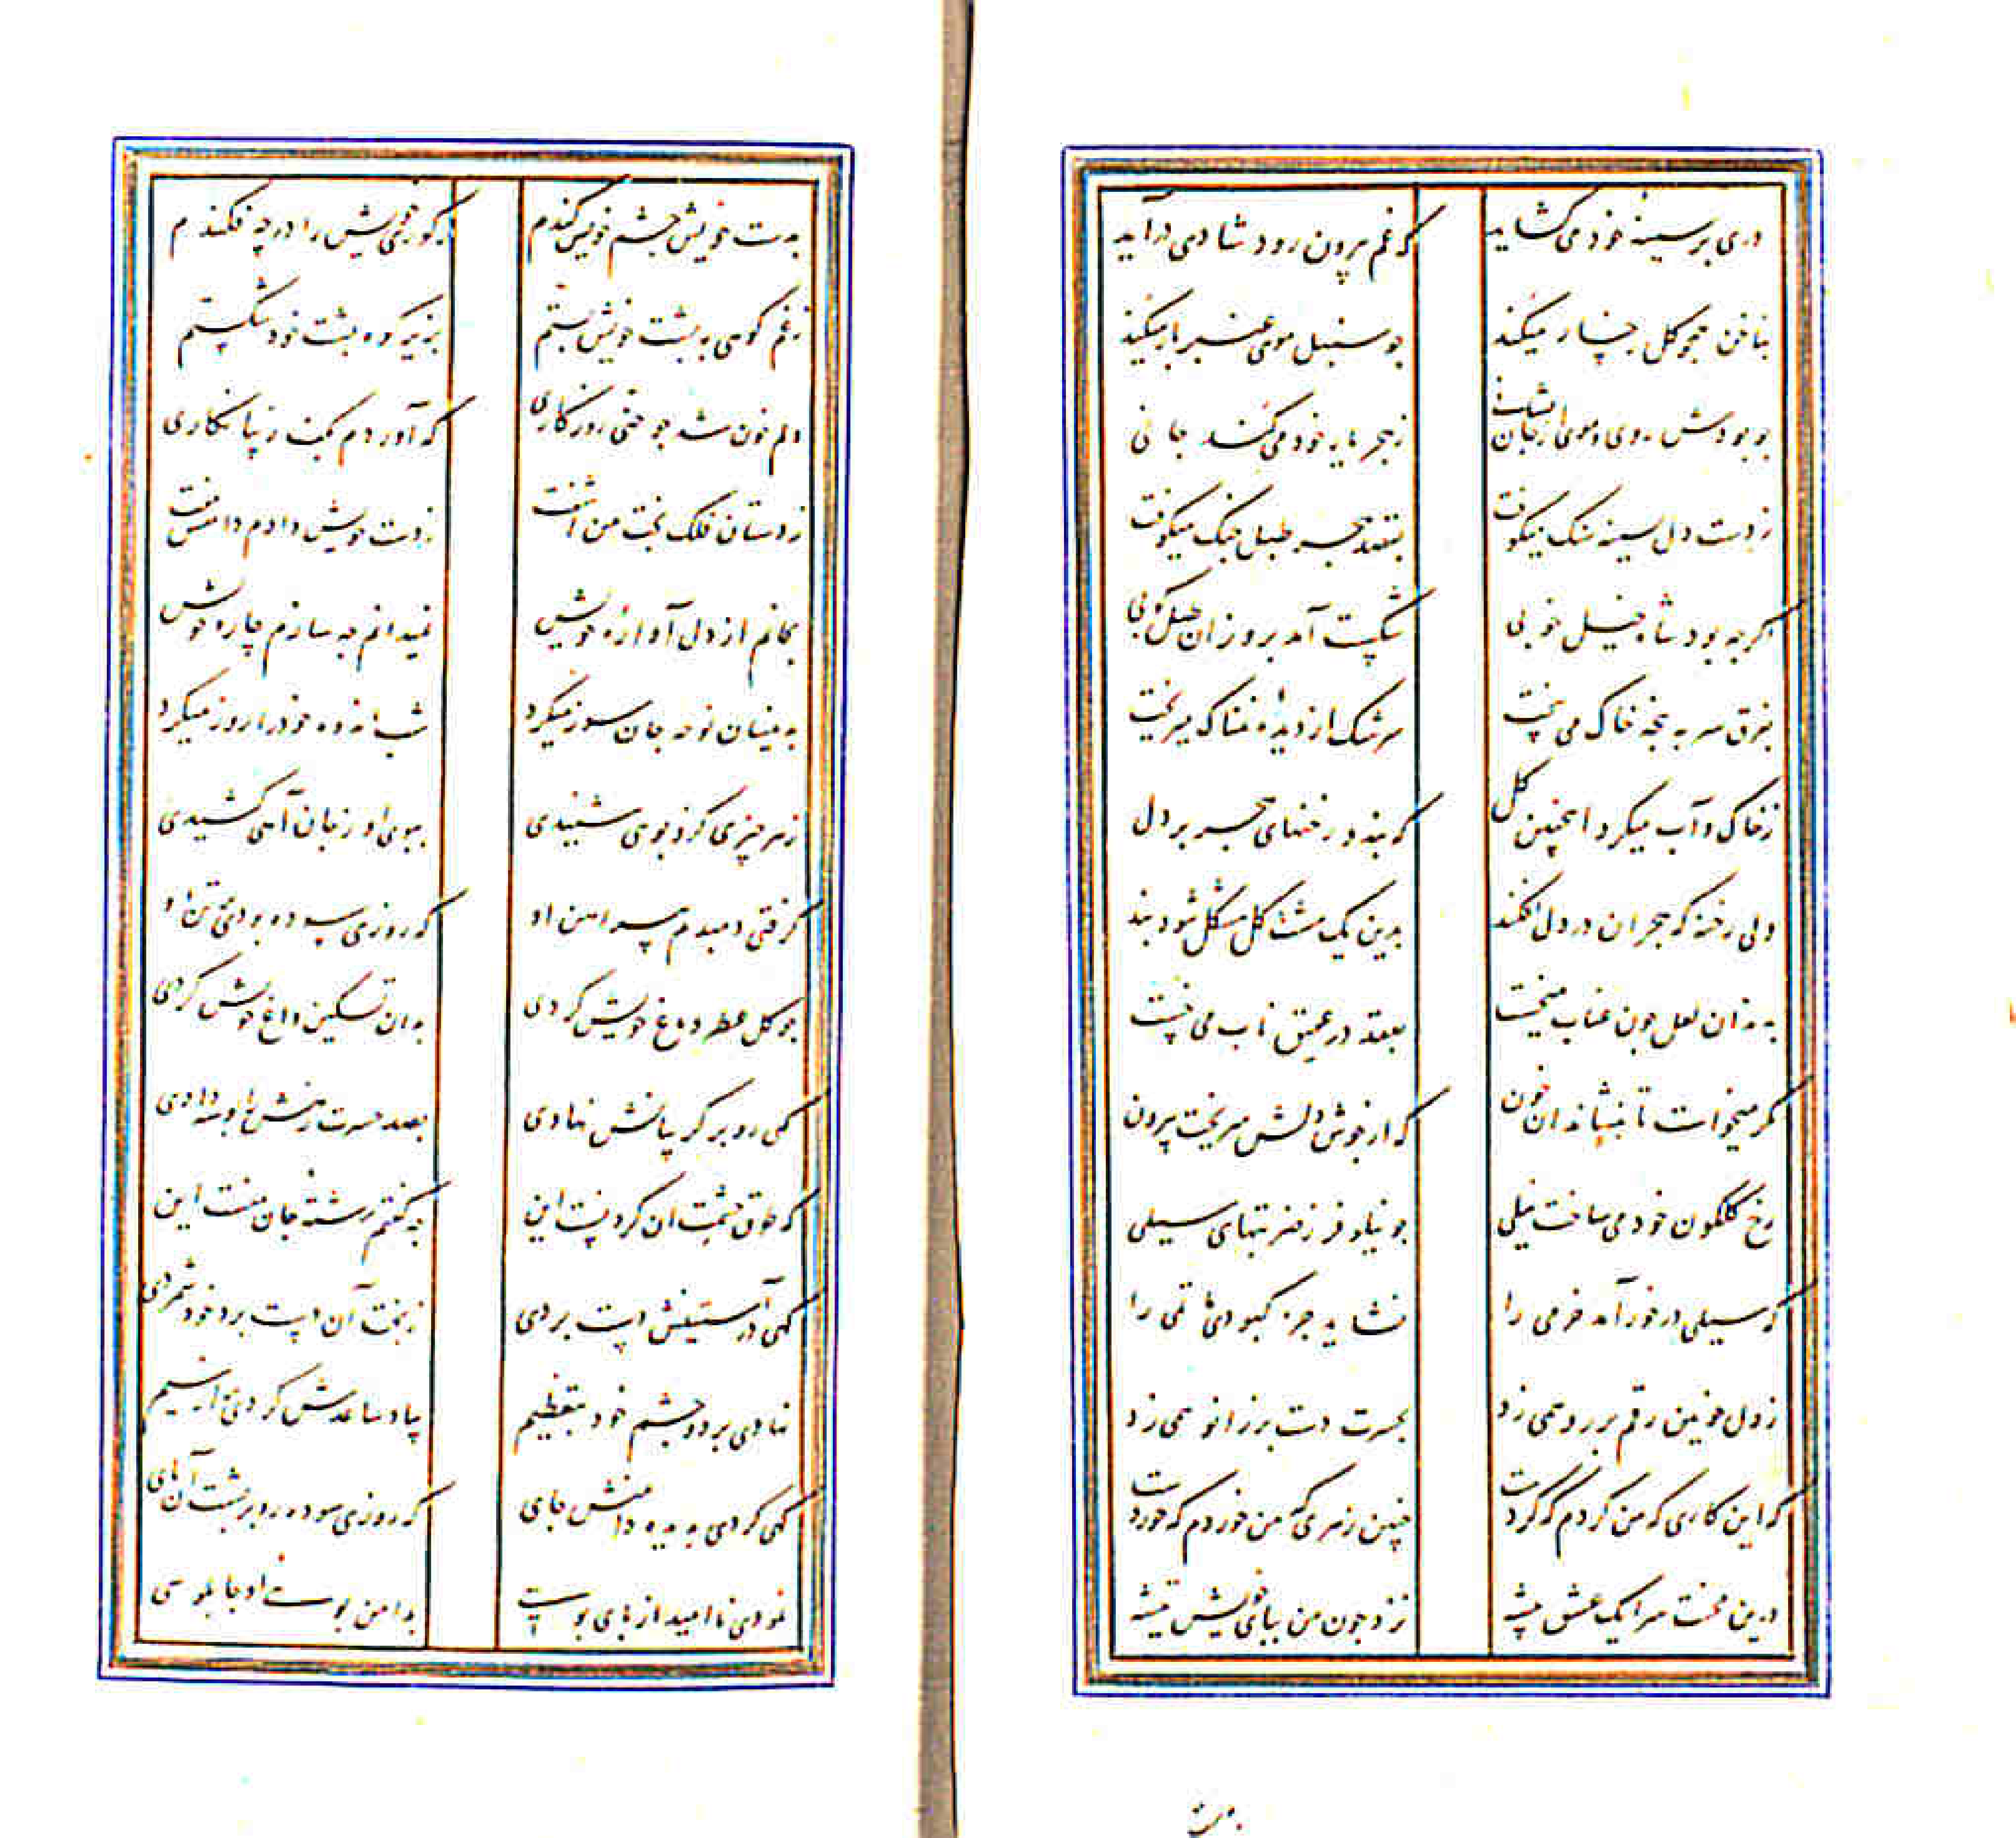 دری بر سینه خود می کشاید که غم بیرون رود شادی درآید
بناخن همچو کل رخسار میکند چو سنبل موی عنبر بار میکند
چو بودش روی و موی از جان نشانی ز هجر یار خود می کند جانی
ز دست دل بسینه سنک میکوفت بقصد هجر طبل جنک میکوفت
اکر چه بود شاه خیل خوبی شکست آمد برو زان طبل کوبی
بفرق سر به پنجه خاک می بیخت سرشک از دیده نمناک میریخت
ز خاک و آب میکرد اینچنین کل که بندد رخنهای هجر بر دل
ولی رخنه که هجران در دل افکند بدین یک مشت کل مشکل شود بند
به دندان لعل چون عناب میخست بعقد در عقیق ناب می خست
مکر میخواست تا بنشاند آن خون که از خونش دلش میریخت بیرون
رخ کلکون خود می ساخت نیلی چو نیلوفر ز ضربتهای سیلی
که سیلی در خور آمد خرمی را نشاید جز کبودی ماتمی را
ز دل خونین رقم بر رو همی زد بحسرت دست بر زانو همی زد
که این کاری که من کردم که کردست چنین زهری که من خوردم که خوردست
درین محنت سرا یک عشق پیشه نزد چون من بپای خویش تیشه
بدست
بدست خویش چشم خویش کندم ز کوری خویش را در چه فکندم
ز غم کوهی به پشت خویش بستم بزیر کوه پشت خود شکستم
دلم خون شد چو ختی روزکاری که آوردم بکف زیبا نکاری
ز دستان فلک بخت من آشفت ز دست خویش دادم دامنش مفت
بجانم از دل آواره خویش نمیدانم چه سازم چاره خویش
به مینسان نوحه جان سوز میکرد شب اندوه خود را روز میکرد
ز هر چیزی کزو بوی شنیدی ببوی او ز جان آهی کشیدی
کرفتی دمبدم پیراهن او که روزی سوده بودی بر تن او
چو کل عطر دماغ خویش کردی بدان تسکین داغ خویش کردی
کهی رو بر کریبانش نهادی بصد حسرت ز مهرش بوسه دادی
که طوق حشمت آن کردنست این چه کفتم رشته جان منست این
کهی در آستینش دست بردی ز بخت آن دست برد خود شمردی
نهادی بر دو چشم خود بتعظیم بیاد ساعدش کردی پر از سیم
کهی کردی به دیده دامنش جای که روزی سوده رو بر پشت آن پای
نمودی نا امید از پای بوست بدامن بوسی او چابلوسی